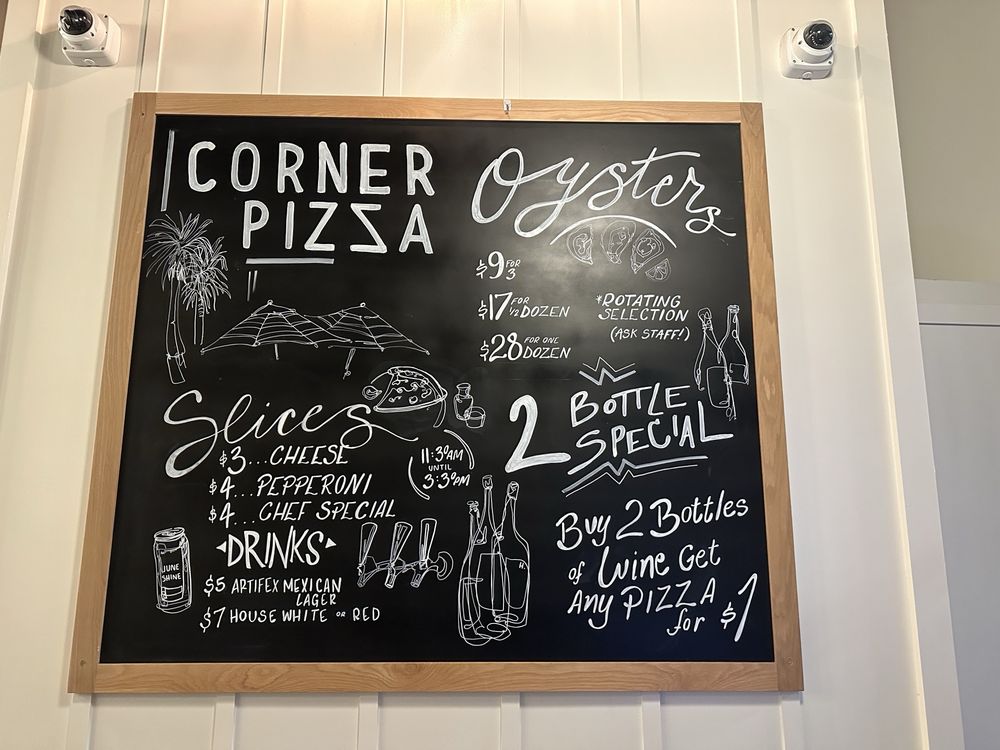 CORNER
PIZZA
Oysters
$9 FOR 3
$17 FOR 1/2 DOZEN
$28 FOR ONE DOZEN
*ROTATING
SELECTION
(ASK STAFF!)
Slices
$3...CHEESE
$4...PEPPERONI
$4...CHEF SPECIAL
11:30AM
UNTIL
3:30PM
DRINKS
JUNE
SHINE
$5 ARTIFEX MEXICAN
LAGER
$7 HOUSE WHITE OR RED
2 BOTTLE
SPECIAL
Buy 2 Bottles
of Wine Get
Any PIZZA
for $1